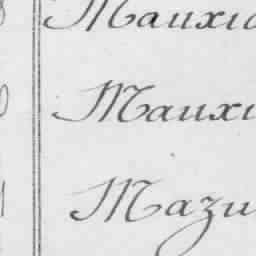 Mauxio
Mauxi
Mazu